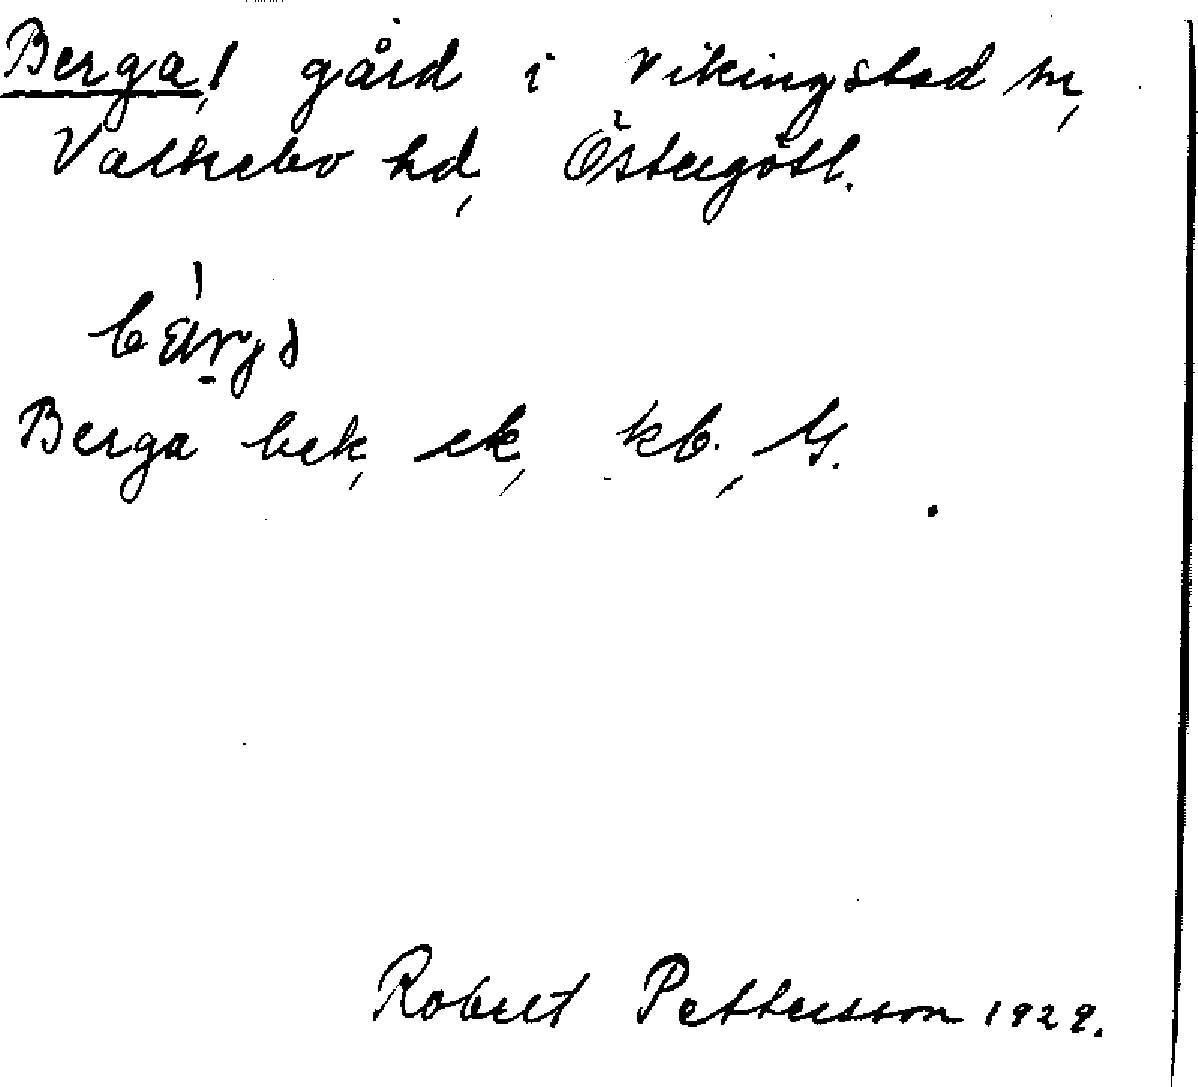 Berga, gård i Vikingstad sn,
Valkebo hd, Östergötl.
Berga bek, ek, kb.,
Robert Pettersson 1929.